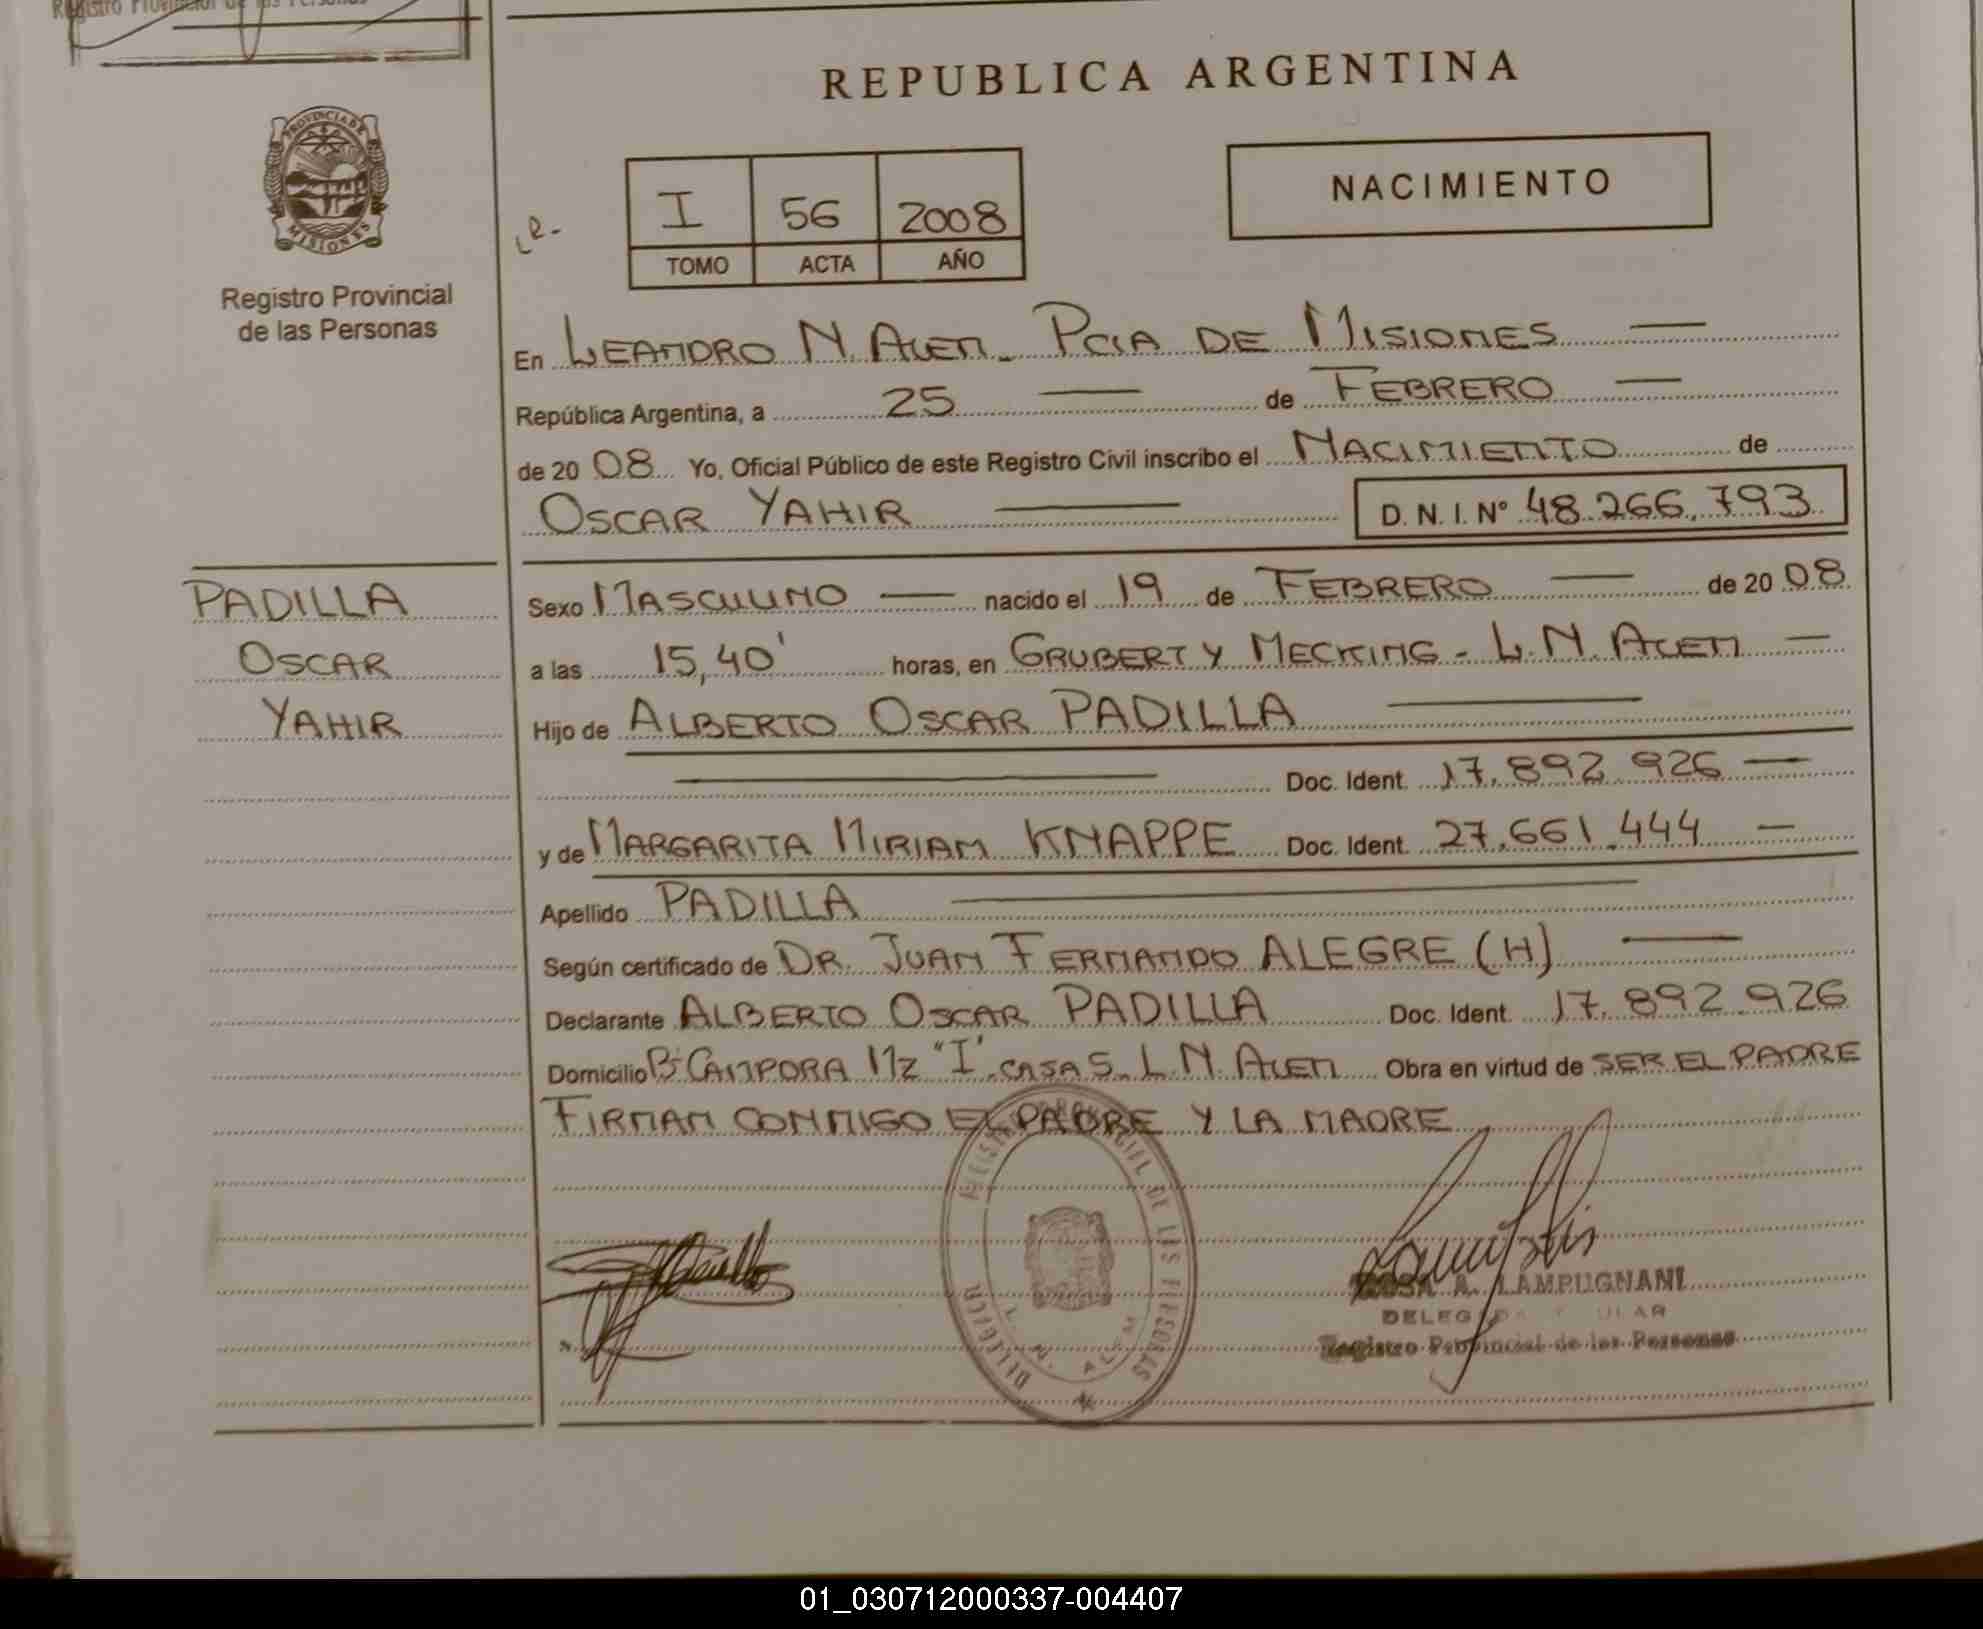 Registro Provincial de las Personas
REPUBLICA ARGENTINA
PROVINCIA DE MISIONES
Registro Provincial
de las Personas
I 56 2008
TOMO ACTA AÑO
NACIMIENTO
En LEANDRO N. ALEM - PCIA DE MISIONES
República Argentina, a 25 de FEBRERO
de 20 08 Yo, Oficial Público de este Registro Civil inscribo el NACIMIENTO de
OSCAR YAHIR D. N. I. Nº 48.266.793
PADILLA
OSCAR
YAHIR
Sexo MASCULINO nacido el 19 de FEBRERO de 20 08
a las 15,40' horas, en GRUBERT Y MECKING - L. N. ALEM
Hijo de ALBERTO OSCAR PADILLA
Doc. Ident. 17.892.926
y de MARGARITA MIRIAM KNAPPE Doc. Ident. 27.661.444
Apellido PADILLA
Según certificado de DR. JUAN FERNANDO ALEGRE (H)
Declarante ALBERTO OSCAR PADILLA Doc. Ident. 17.892.926
Domicilio Bº CAMPORA MZ "I" CASA 5 - L. N. ALEM Obra en virtud de SER EL PADRE
FIRMAN CONMIGO EL PADRE Y LA MADRE
REGISTRO PROVINCIAL DE LAS PERSONAS
DELEGACION L. N. ALEM
ROSA A. LAMPUGNANI
DELEGADA TITULAR
Registro Provincial de las Personas
01_030712000337-004407